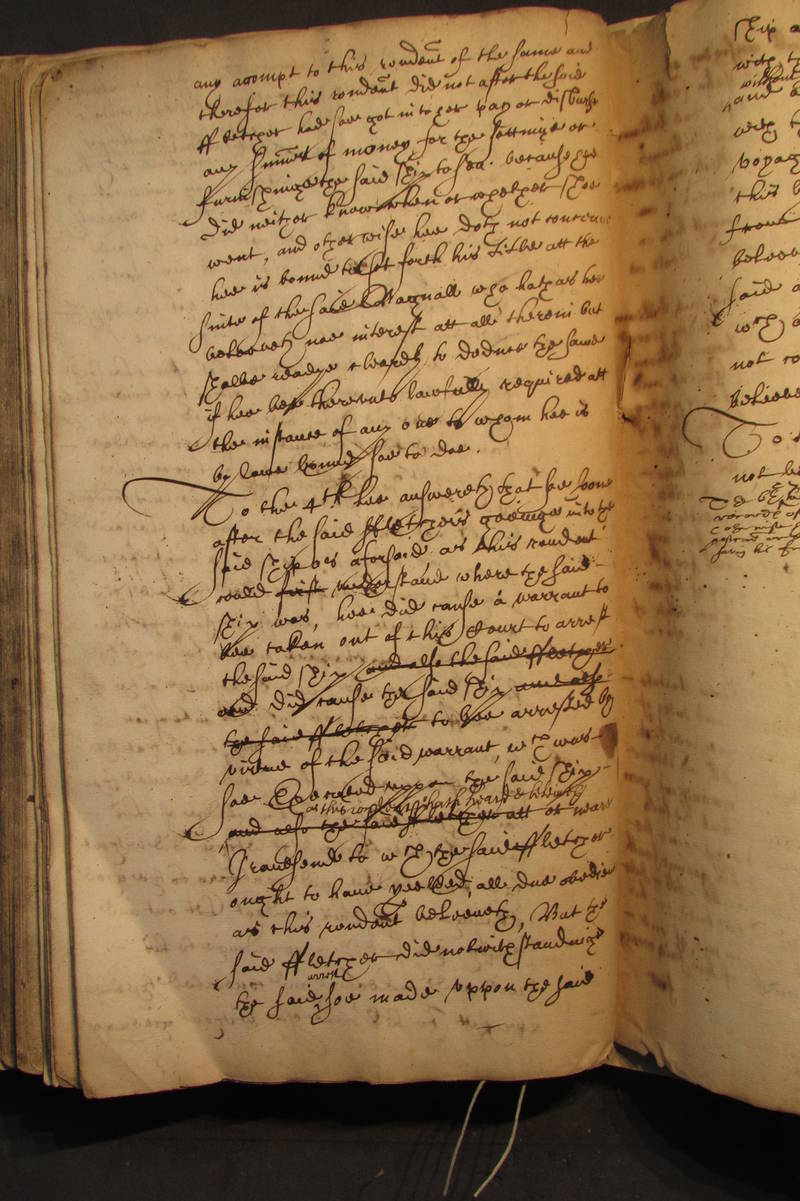 any accompt to this rendent of the same and
therefor this rendent did not after the said
ffletcher had soe got in to her pay or disburse
any summe of money for the setting or
furnishinge the said ship to sea. because hee
did neither know when or whether shee
went, and otherwise hee doth not conceive
hee is bound to set forth his title att the
suite of the said Bagnall who hath as hee
beleeveth noe interest att all therein but
shalbe readye to deduce the same
if hee bee thereunto lawfully required att
the instance of any one to whom hee is
by lawe bound soe to doe.
To the 4th hee answereth that soe soone
after the said ffletchers goeinge into the
said ship as aforsaid as this rendent
could first understand where the said
ship was, hee did cause a warrant to
bee taken out of this Court to arrest
the said ship and also the said ffletcher
and did cause the said ship and also
the said ffletcher to bee arrested by
virtue of the said warrant, wch was
soe executed uppon the said ship
as this rendent hath heard & beleeveth
and also the said ffletcher att or neare
Gravesend to wch the said ffletcher
ought to have yeelded all due obedience
as this rendent beleeveth, But the
said ffletcher did notwithstandinge
arrest
the said soe made uppon the said
ship
with
without
and
voyag
this
from
beleev
said a
wch
not
beleeve
To
not